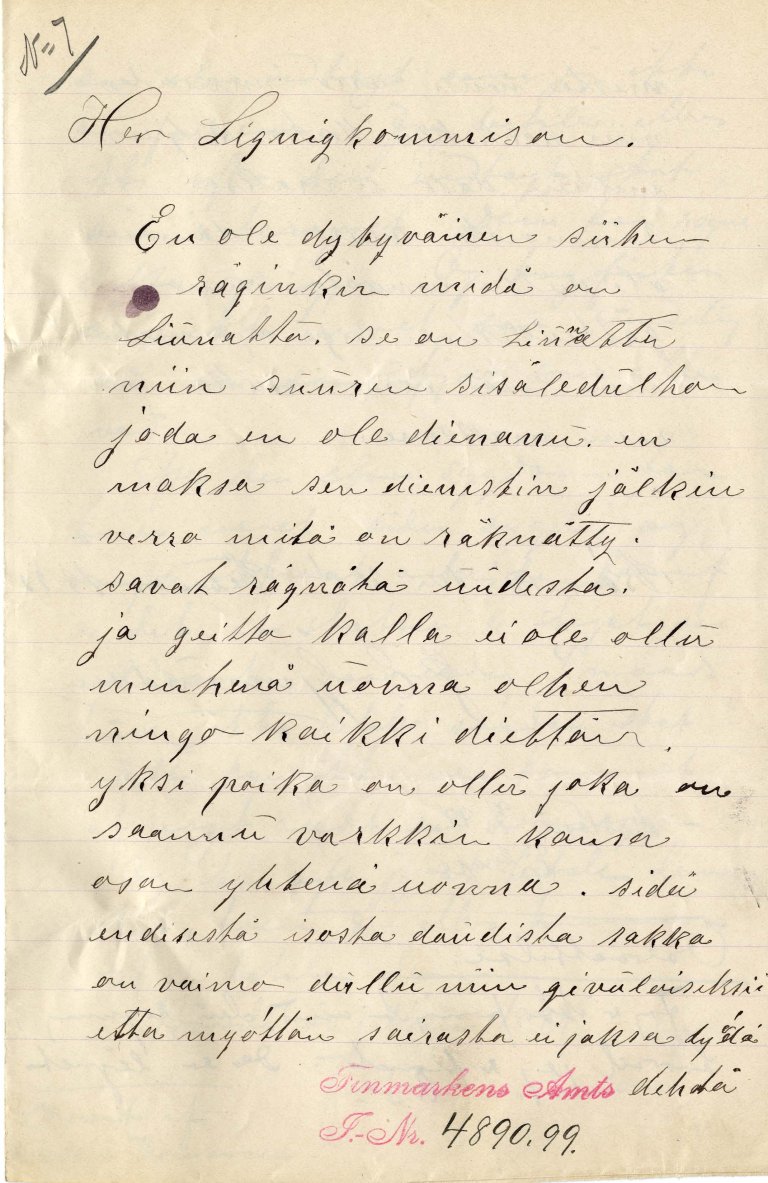 N= 7
Herr Lignigkommison.
En ole dybyväinen siihen
räginkin midä on
Liünattä. se on Liünättü
niin süüren sisäledülhon
joda en ole dienanü. en
maksa sen dienistin jälkin
verro mitä on räknätty.
savat rägnätä üüdestä.
ja geitto kalla ei ole ollü
menhenä üonna olhen
ningo kaikki diettän
yksi poika on ollü joka on
saannü varkkin kansa
osan yhtenä uonna. sidä
endisestä isosta doüdista sakka
on vaimo düllü niin givüloiseksii
että myöttän sairasta ei jaksa dyödä
dehdä
Finmarkens Amts
J.-Nr. 4890.99.